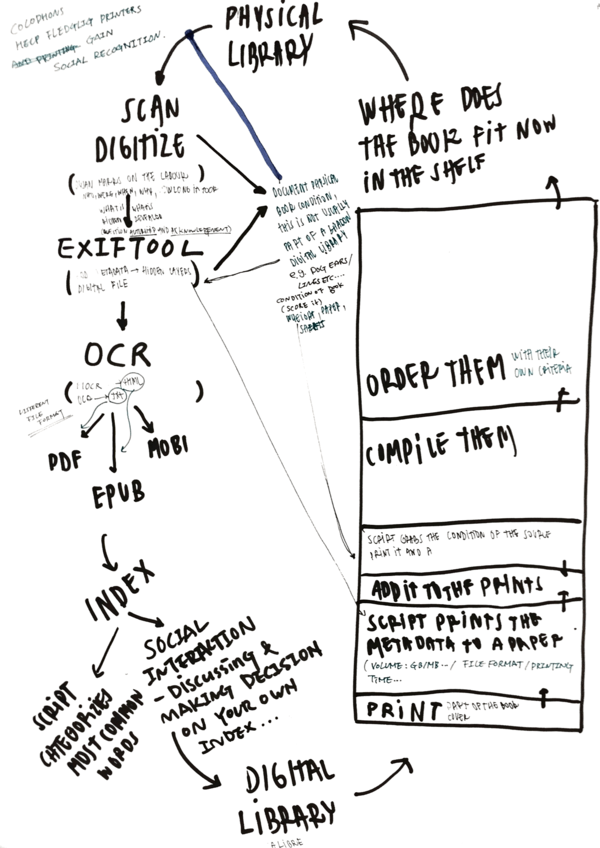 COLOPHONS
HELP FLEDGLIG PRINTERS
AND PRINTING GAIN
SOCIAL RECOGNITION.
PHYSICAL
LIBRARY
SCAN
DIGITIZE
(SCAN MARKS ON THE LABOUR
EXIFTOOL
METADATA → HIDDEN LAYERS
DIGITAL FILE
OCR
HTML
DIFFERENT
FILE
FORMAT
PDF
EPUB
MOBI
INDEX
SCRIPT
CATEGORIZES
MOST COMMON
WORDS
SOCIAL
INTERACTION
- DISCUSSING &
MAKING DECISION
ON YOUR OWN
INDEX...
DIGITAL
LIBRARY
DOCUMENT PHYSICAL
BOOK CONDITION,
THIS IS NOT USUALLY
PART OF A
DIGITAL LIBRARY
e.g. DOG EARS/
LINES ETC....
CONDITION OF BOOK
(SCORE it)
WHERE DOES
THE BOOK FIT NOW
IN THE SHELF
ORDER THEM WITH THEIR
OWN CRITERIA
COMPILE THEM
SCRIPT GRABS THE CONDITION OF THE SOURCE
PRINT IT AND A
ADD IT TO THE PRINTS
SCRIPT PRINTS THE
METADATA TO A PAPER
(VOLUME: GB/MB--/ FILE FORMAT/PRINTING
TIME...
PRINT PART OF THE BOOK
COVER